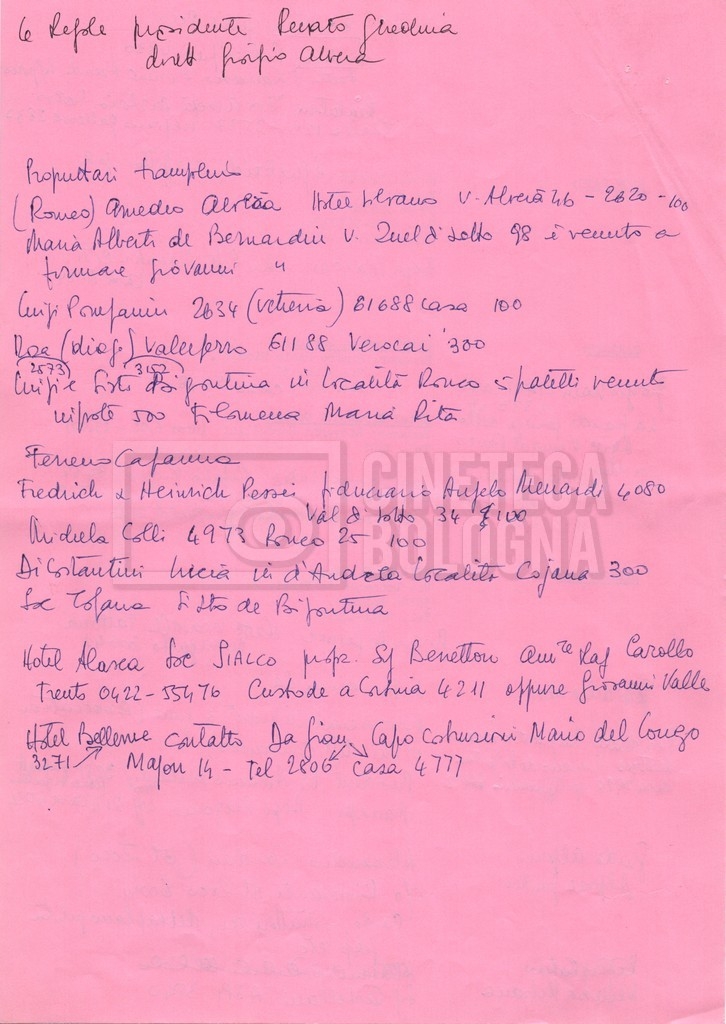 Le Regole presidente Renato Ghedina
dirett Giorgio Alverà
Proprietari trampolino
(Romeo) Amedeo Alverà Hotel V. Alverà 46 - 2620 - 100
Maria Alberti de Bernardini V. 98 è venuto a
firmare Giovanni "
Luigi Pompanin 2634 (vetreria) 61688 casa 100
Rosa (diag) Valleferro 61188 Verocai 300
2573 3152
Luigi e Sisto Bigontina in Località Ronco spaletti venuto
nipote 500 Filomena Maria Rita
Terreno Capanna
Fiedrich & Heinrich fiduciario Angelo Menardi 4080
Val di sotto 34 100
Michela Colli 4973 Ronco 25 100
Di Costantini Lucia in d'Andrea Località Cojana 300
Soc Tofana Sisto de Bigontina
CINETECA
BOLOGNA
Hotel Alasca Soc SIALCO propr. Sg Benetton amre Rag Carollo
Trento 0422-55476 Custode a Cortina 4211 oppure Giovanni Valle
Hotel Bellevue contatto Da Gian Capo costruzioni Mario del Longo
3271 Majon 14 - Tel 2806 casa 4777